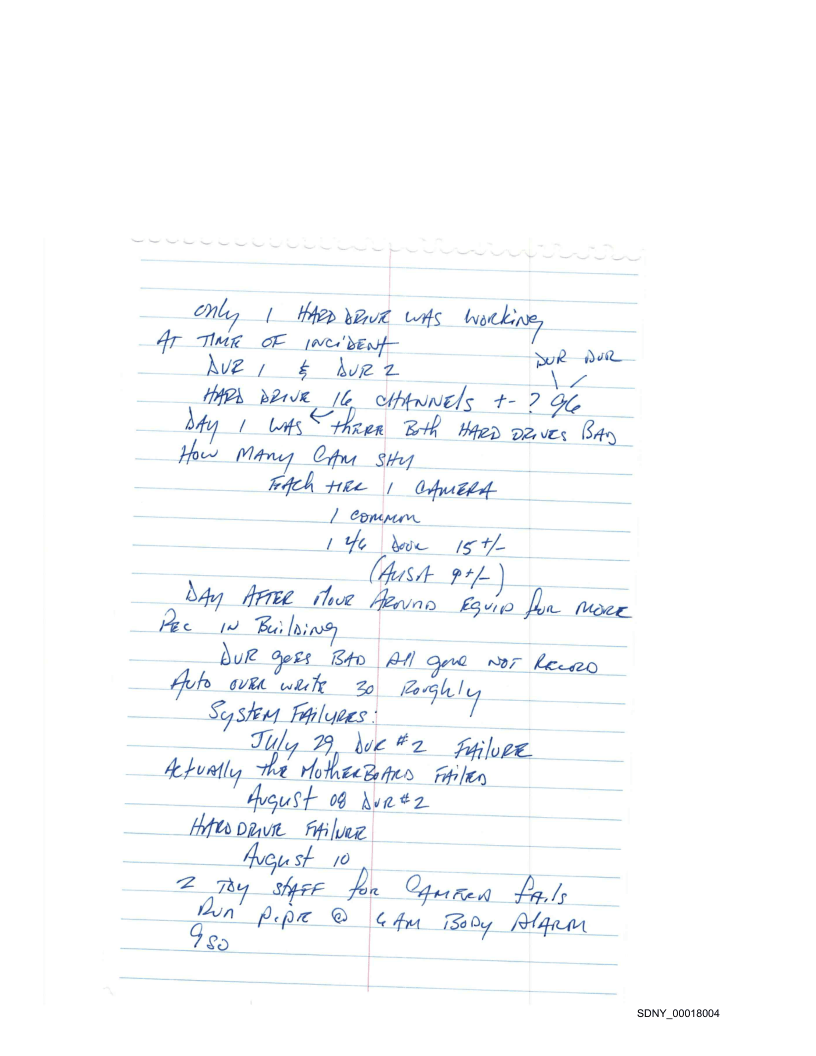 only 1 HARD DRIVE WAS working
AT TIME OF INCIDENT
DVR DVR
DVR 1 & DVR 2
HARD DRIVE 16 CHANNELS +- ? 96
DAY 1 WAS there Both HARD DRIVES BAD
How MANY CAM SHU
EACH TIER 1 CAMERA
1 common
1 Door 15 +/-
(AUSA 9 +/-)
DAY AFTER MOVE AROUND EQUIP for MORE
REC IN BuilDING
DVR goes BAD All gone NOT RECORD
Auto OVER WRITE 30 Roughly
SYSTEM FAILURES:
July 29 DVR #2 FAILURE
ACTUALLY the MotherBOARD FAILED
August 08 DVR #2
HARD DRIVE FAILURE
August 10
2 TDY STAFF for CAMERA fails
RUN PIPE @ 6 AM BODY ALARM
SDNY_00018004